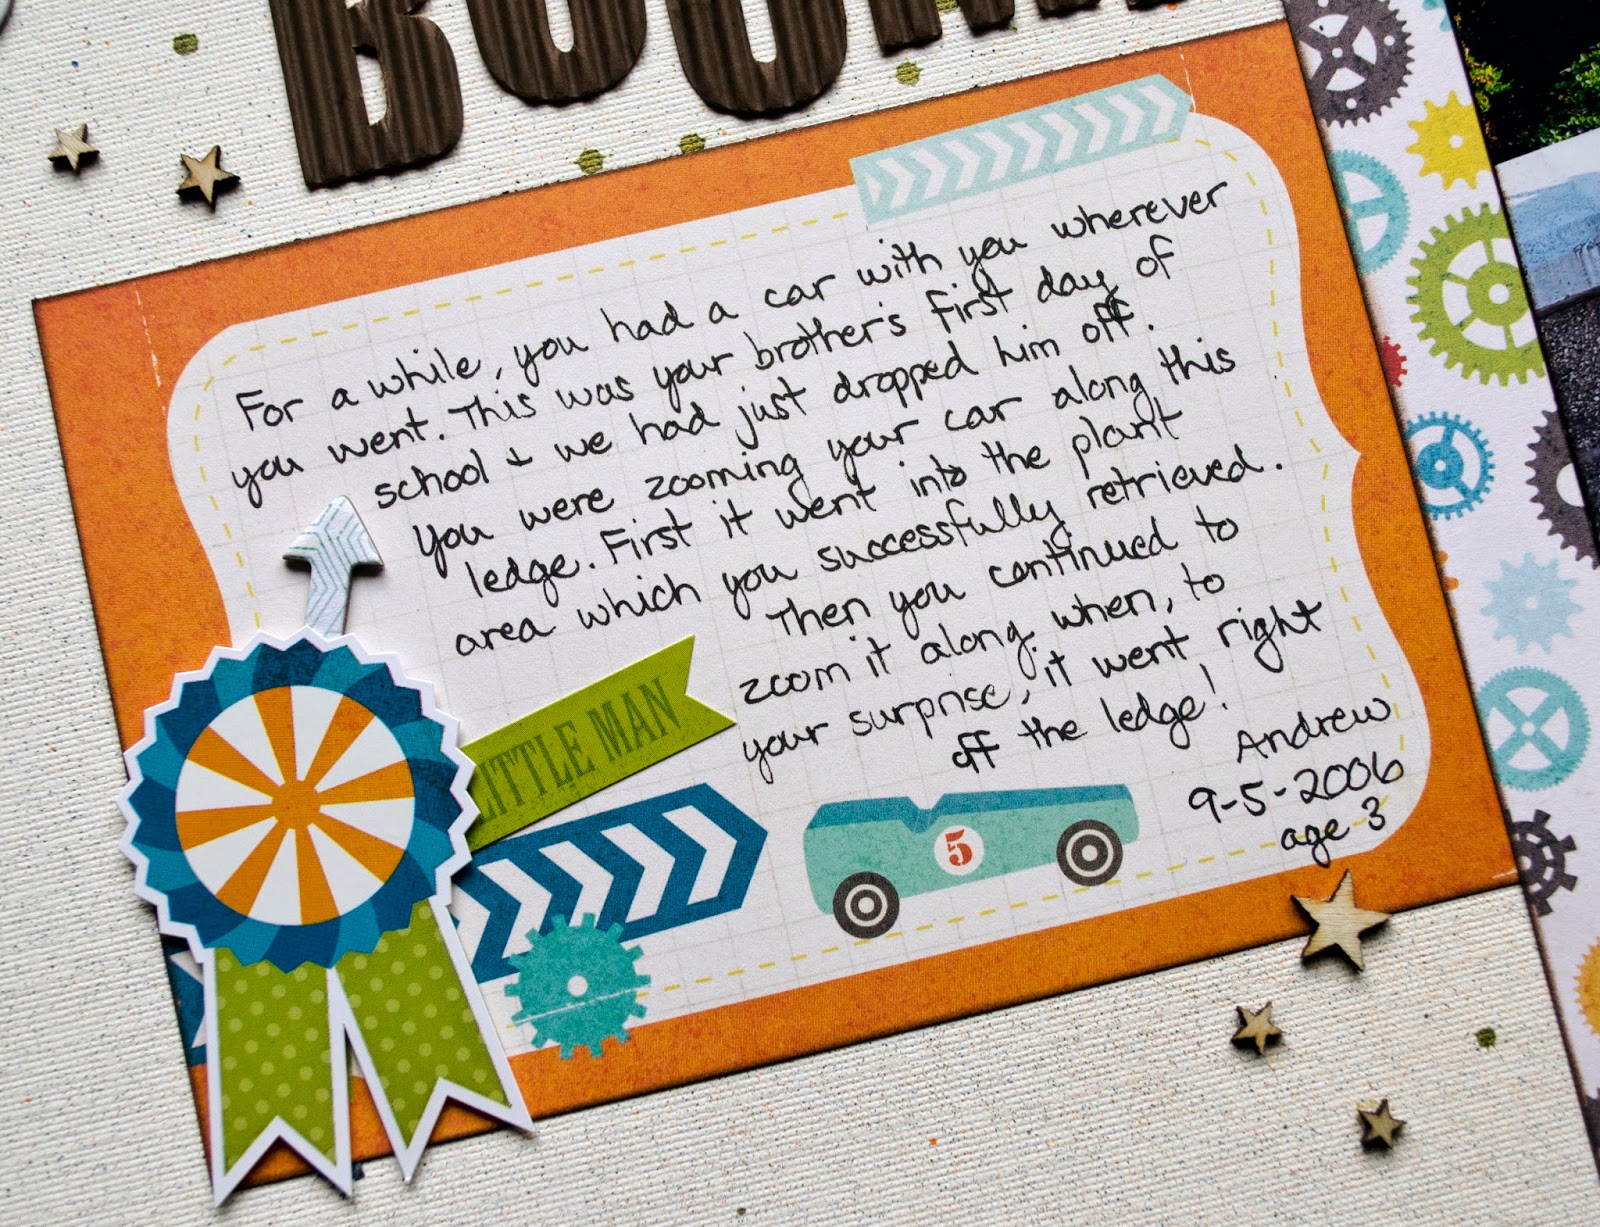 For a while, you had a car with you wherever
you went. This was your brother's first day of
school + we had just dropped him off.
You were zooming your car along this
ledge. First it went into the plant
area which you successfully retrieved.
Then you continued to
zoom it along when, to
your surprise, it went right
off the ledge!
Andrew
9-5-2006
age 3
LITTLE MAN
5